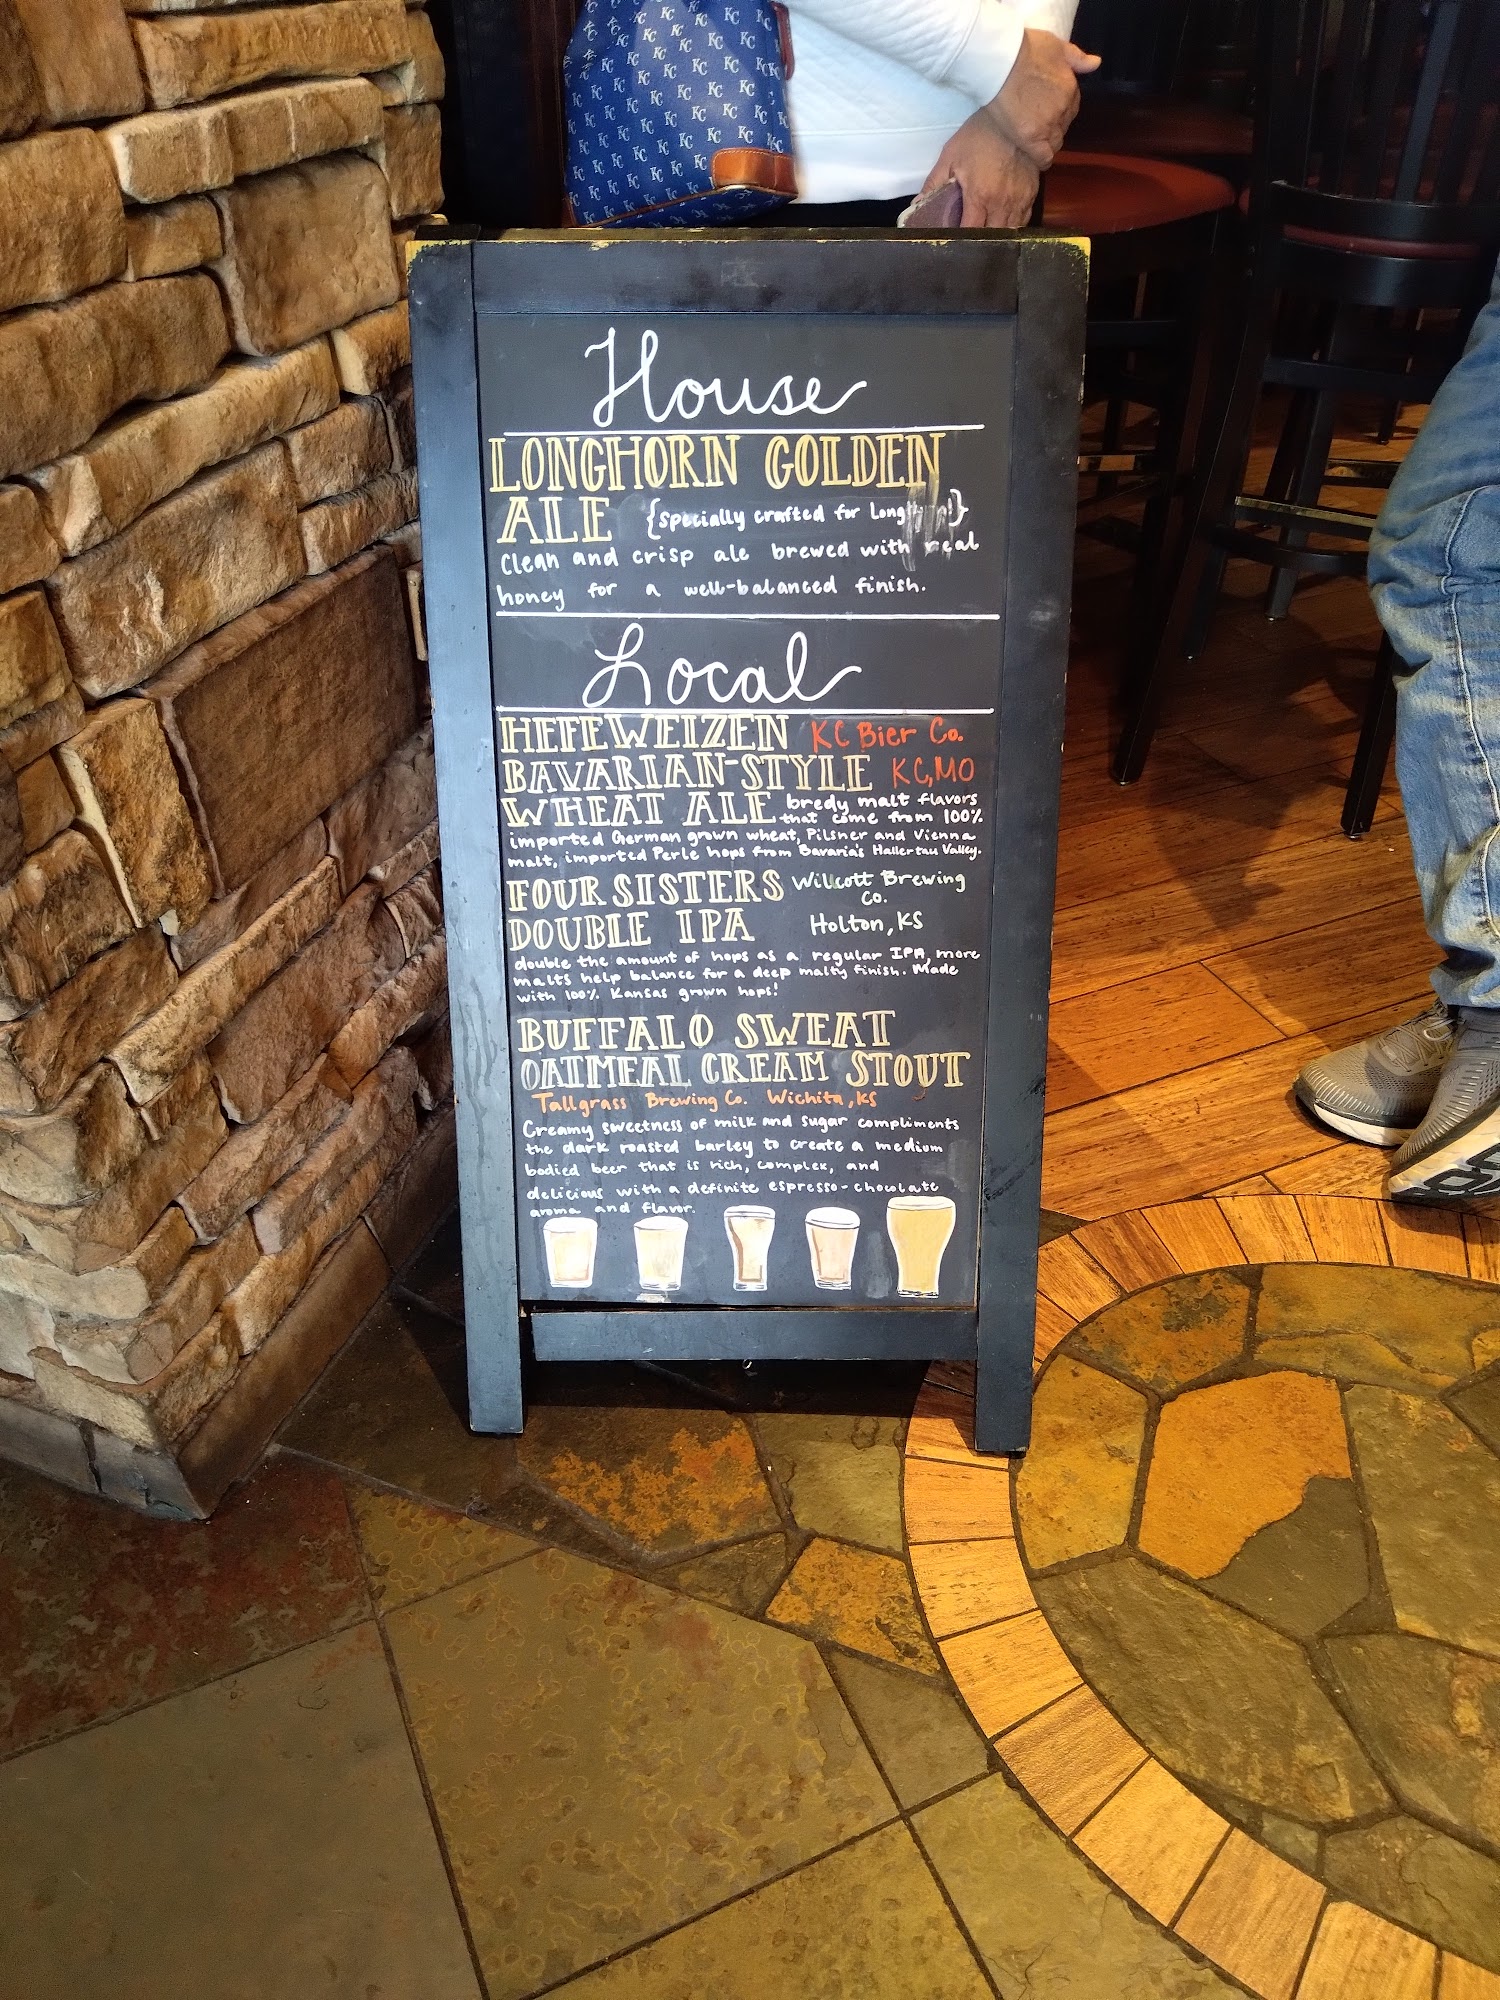 House
LONGHORN GOLDEN
ALE {specially crafted for Longhorn!}
Clean and crisp ale brewed with real
honey for a well-balanced finish.
Local
HEFEWEIZEN KC Bier Co.
BAVARIAN-STYLE KC, MO
WHEAT ALE bready malt flavors
that come from 100%
imported German grown wheat, Pilsner and Vienna
malt, imported Perle hops from Bavaria's Hallertau Valley.
FOUR SISTERS Willcott Brewing
Co.
DOUBLE IPA Holton, KS
double the amount of hops as a regular IPA, more
malts help balance for a deep malty finish. Made
with 100% Kansas grown hops!
BUFFALO SWEAT
OATMEAL CREAM STOUT
Tallgrass Brewing Co. Wichita, KS
Creamy sweetness of milk and sugar compliments
the dark roasted barley to create a medium
bodied beer that is rich, complex, and
delicious with a definite espresso-chocolate
aroma and flavor.